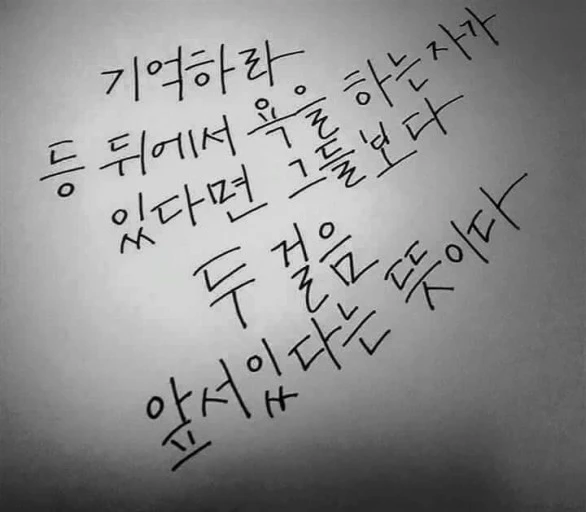 기억하라
등 뒤에서 욕을 하는자가
있다면 그들보다
두 걸음
앞서있다는 뜻이다